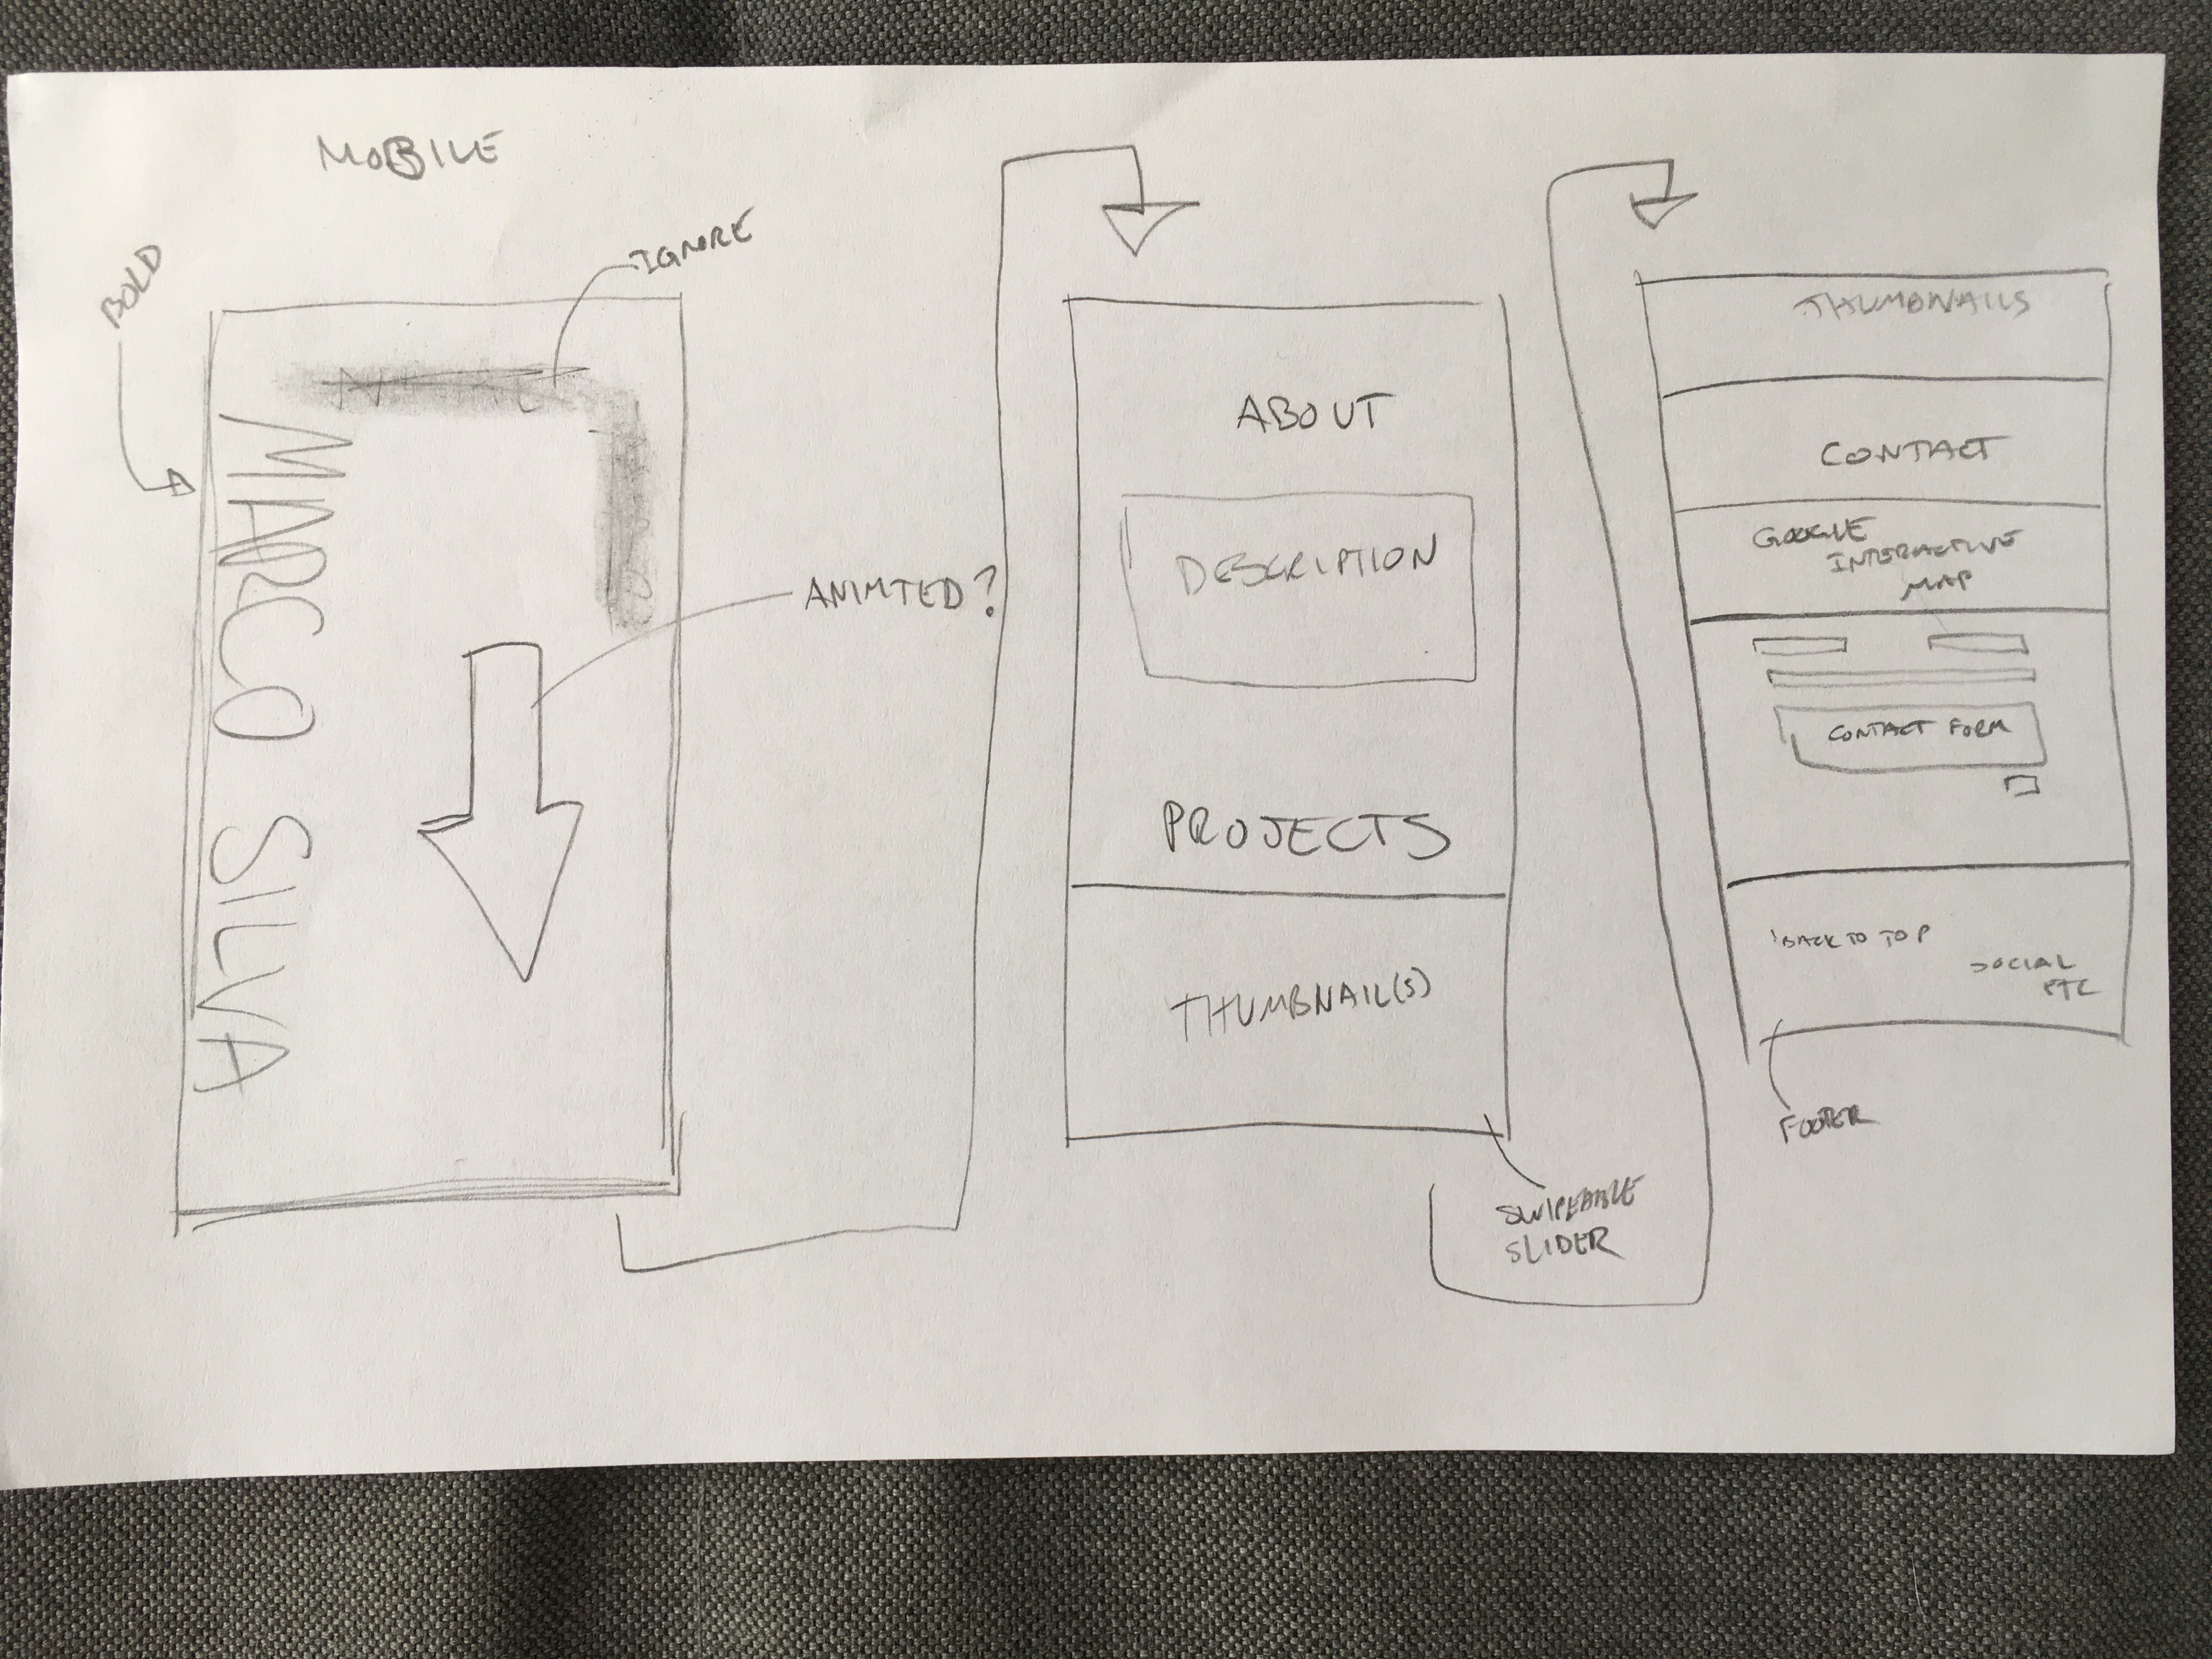 MOBILE
BOLD
IGNORE
MARCO SILVA
ANIMTED?
ABOUT
DESCRIPTION
PROJECTS
THUMBNAIL(S)
SWIPEABLE
SLIDER
THUMBNAILS
CONTACT
GOOGLE
INTERACTIVE
MAP
CONTACT FORM
BACK TO TOP
SOCIAL
ETC
FOOTER